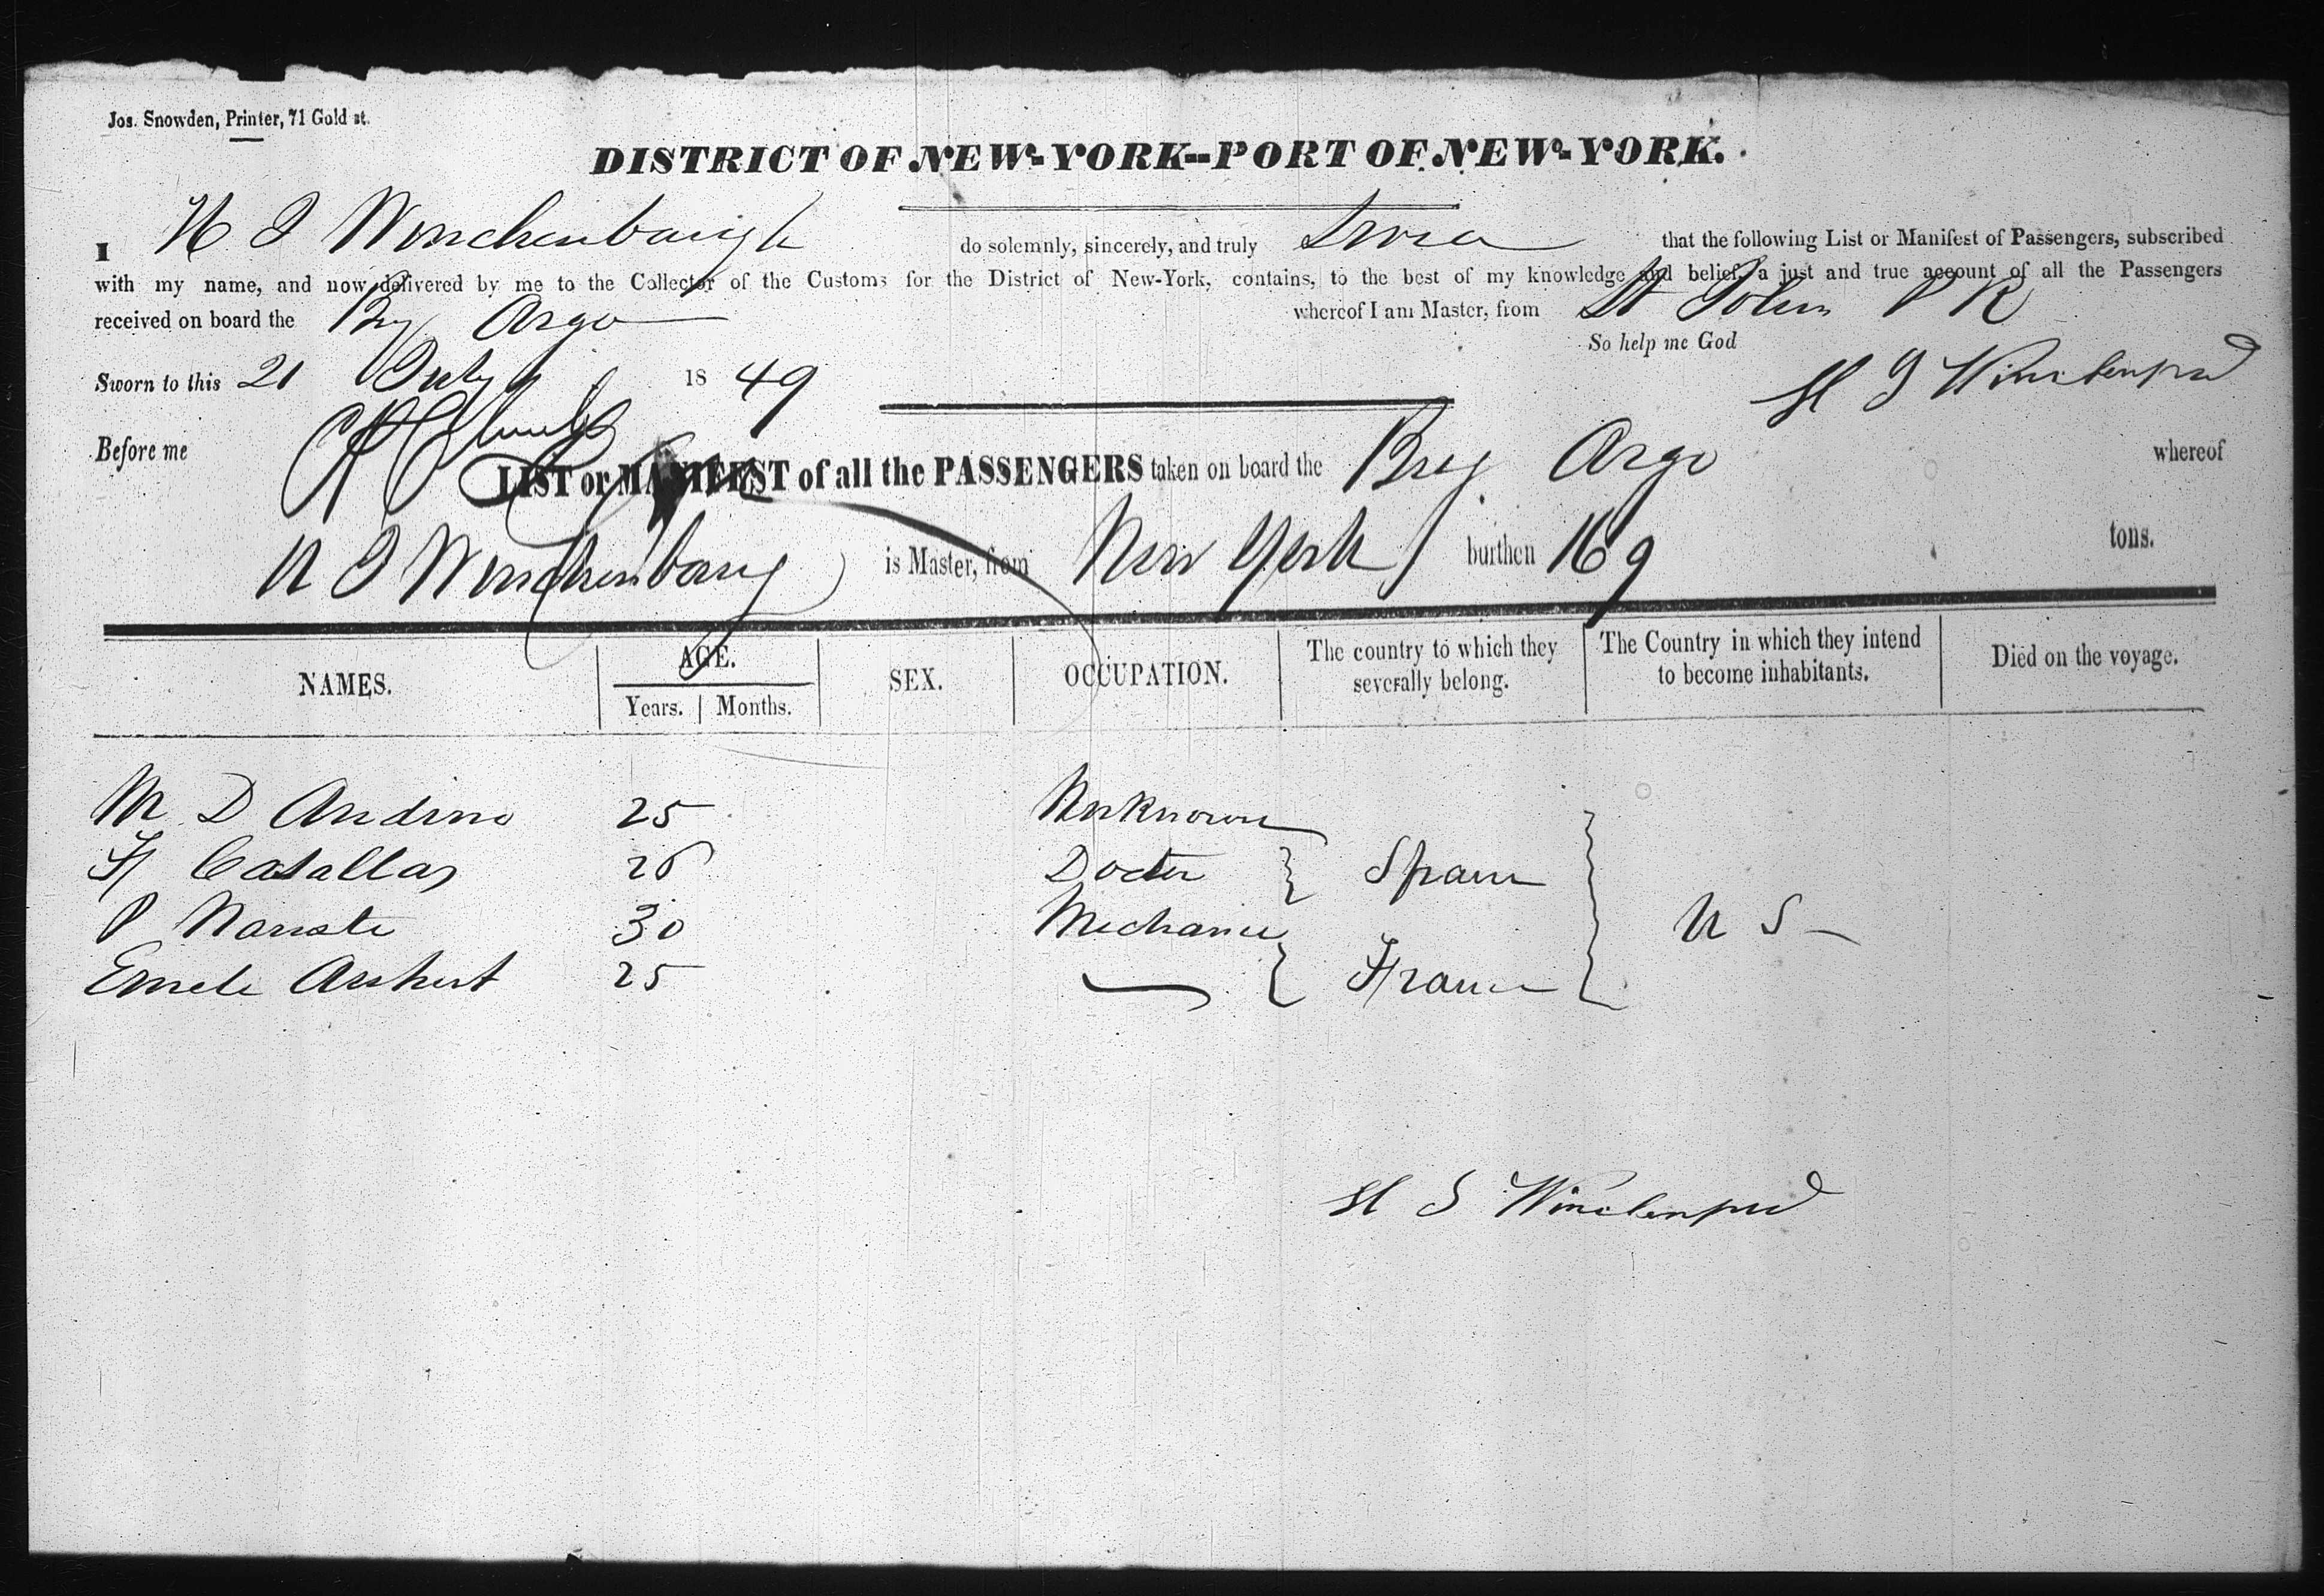 Jos. Snowden, Printer, 71 Gold st.
DISTRICT OF NEW-YORK--PORT OF NEW-YORK.
I H J Winchenbaugh do solemnly, sincerely, and truly Swear that the following List or Manifest of Passengers, subscribed
with my name, and now delivered by me to the Collector of the Customs for the District of New-York, contains, to the best of my knowledge and belief, a just and true account of all the Passengers
received on board the Brig Argo whereof I am Master, from St John P R
So help me God
Sworn to this 21 July 1849
H J
Before me
LIST or MANIFEST of all the PASSENGERS taken on board the Brig Argo whereof
H J Winchenbaug is Master, from New York burthen 169 tons.
NAMES. AGE. SEX. OCCUPATION. The country to which they severally belong. The Country in which they intend to become inhabitants. Died on the voyage.
Years. Months.
M D Andino 25 Unknown
F Casallas 26 Docter Spain
P 30 Mechanic U S
Emele 25 France
H J